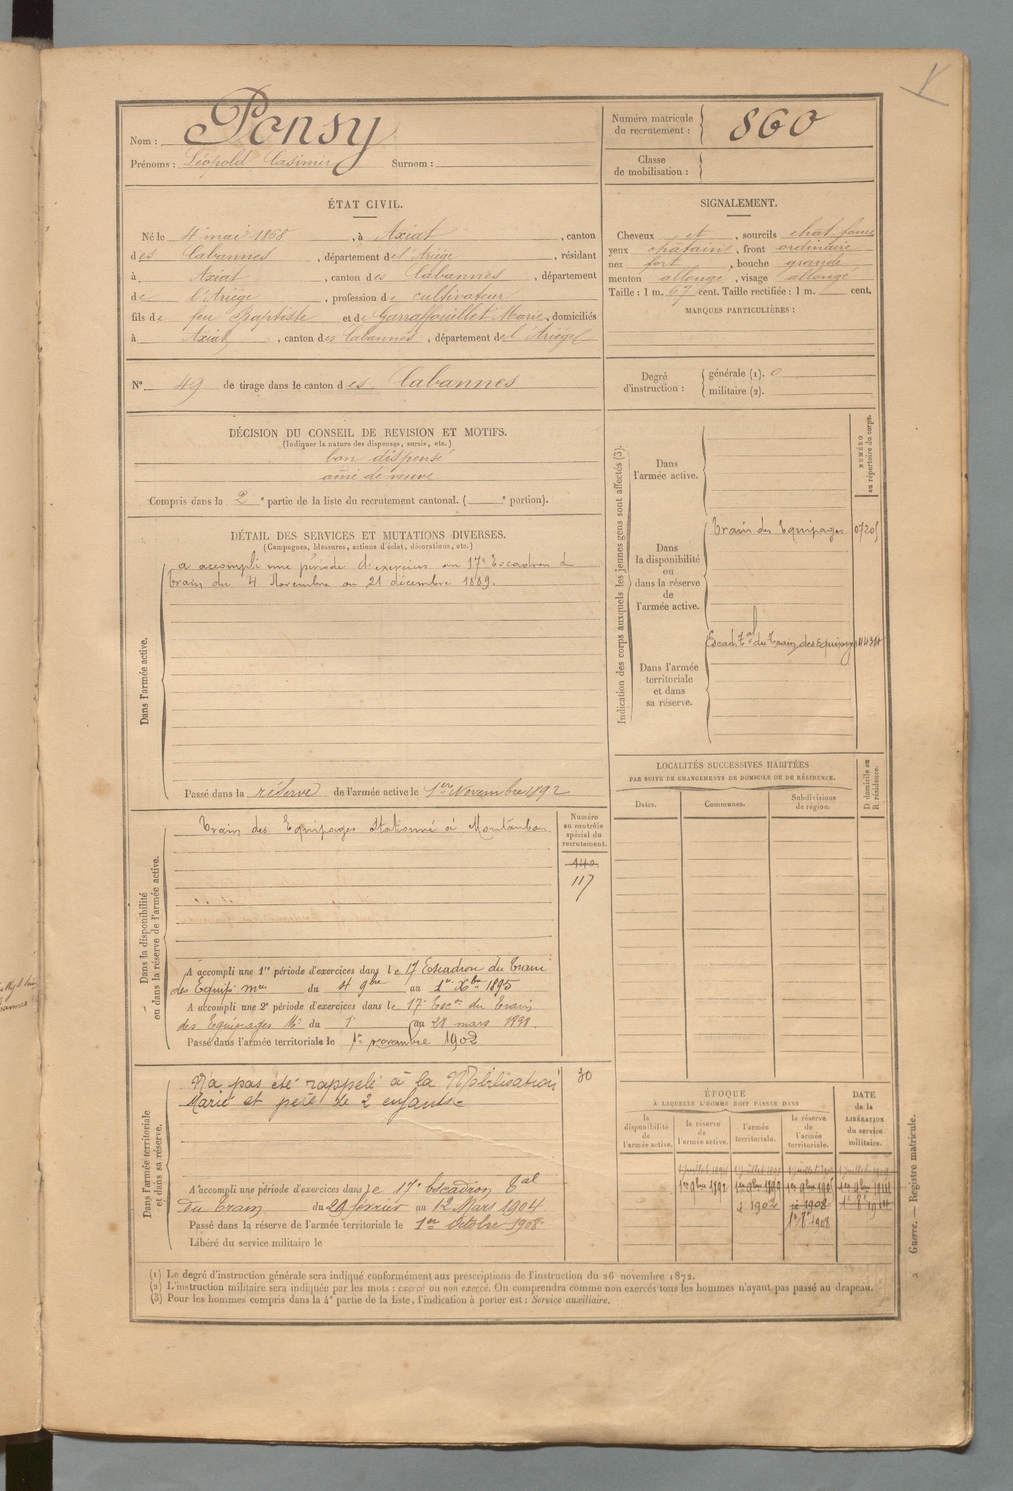 Nom : Ponsy
Prénoms : Léopold Casimir Surnom :
Numéro matricule du recrutement : 860
Classe de mobilisation :
ÉTAT CIVIL.
Né le 4 mai 1868, à Axiat, canton
des Cabannes, département de l'Ariège, résidant
à Axiat, canton des Cabannes, département
de l'Ariège, profession de cultivateur
fils de feu Baptiste et de Garraffouillet Marie, domiciliés
à Axiat, canton des Cabannes, département de l'Ariège
N° 49 de tirage dans le canton des Cabannes
SIGNALEMENT.
Cheveux et, sourcils chat. foncé
yeux chatains, front ordinaire
nez fort, bouche grande
menton allongé, visage allongé
Taille : 1 m. 67 cent. Taille rectifiée : 1 m. cent.
MARQUES PARTICULIÈRES :
Degré d'instruction : générale (1). 0
militaire (2).
DÉCISION DU CONSEIL DE REVISION ET MOTIFS.
(Indiquer la nature des dispenses, sursis, etc.)
bon dispensé
ainé de veuve
Compris dans la 2e partie de la liste du recrutement cantonal. ( e portion).
DÉTAIL DES SERVICES ET MUTATIONS DIVERSES.
(Campagnes, blessures, actions d'éclat, décorations, etc.)
Dans l'armée active.
a accompli une période d'exercices au 17e Escadron du
train du 4 Novembre au 21 décembre 1889.
Passé dans la réserve de l'armée active le 1er Novembre 1892
Indication des corps auxquels les jeunes gens sont affectés (3).
NUMÉRO au répertoire du corps.
Dans l'armée active.
Dans la disponibilité ou dans la réserve de l'armée active.
Train des Equipages
Dans l'armée territoriale et dans sa réserve.
Escad. Tal du Train des Equipages
LOCALITÉS SUCCESSIVES HABITÉES
PAR SUITE DE CHANGEMENTS DE DOMICILE OU DE RÉSIDENCE.
Dates. Communes. Subdivisions de région. D. domicile ou R. résidence.
Dans la disponibilité ou dans la réserve de l'armée active.
Train des Equipages stationné à Montauban
Numéro au contrôle spécial du recrutement.
140
117
A accompli une 1re période d'exercices dans le 17 Escadron du Train
des Equip. mres du 4 9bre au 1er Xbre 1895
A accompli une 2e période d'exercices dans le 17e Escon du Train
des Equipages Mres du 1er au 28 mars 1898.
Passé dans l'armée territoriale le 1er novembre 1902
Dans l'armée territoriale et dans sa réserve.
N'a pas été rappelé à la Mobilisation
Marié et père de 2 enfants
30
A accompli une période d'exercices dans le 17e Escadron Tal
du Train du 29 février au 12 Mars 1904
Passé dans la réserve de l'armée territoriale le 1er Octobre 1908
Libéré du service militaire le
ÉPOQUE
À LAQUELLE L'HOMME DOIT PASSER DANS
la disponibilité de l'armée active.
la réserve de l'armée active.
l'armée territoriale.
la réserve de l'armée territoriale.
DATE de la LIBÉRATION du service militaire.
1er 9bre 1892
1902
1908
1er 8e 1908
1er 8e 1914
(1) Le degré d'instruction générale sera indiqué conformément aux prescriptions de l'instruction du 26 novembre 1872.
(2) L'instruction militaire sera indiquée par les mots : exercé ou non exercé. On comprendra comme non exercés tous les hommes n'ayant pas passé au drapeau.
(3) Pour les hommes compris dans la 4e partie de la liste, l'indication à porter est : Service auxiliaire.
Guerre. — Registre matricule.